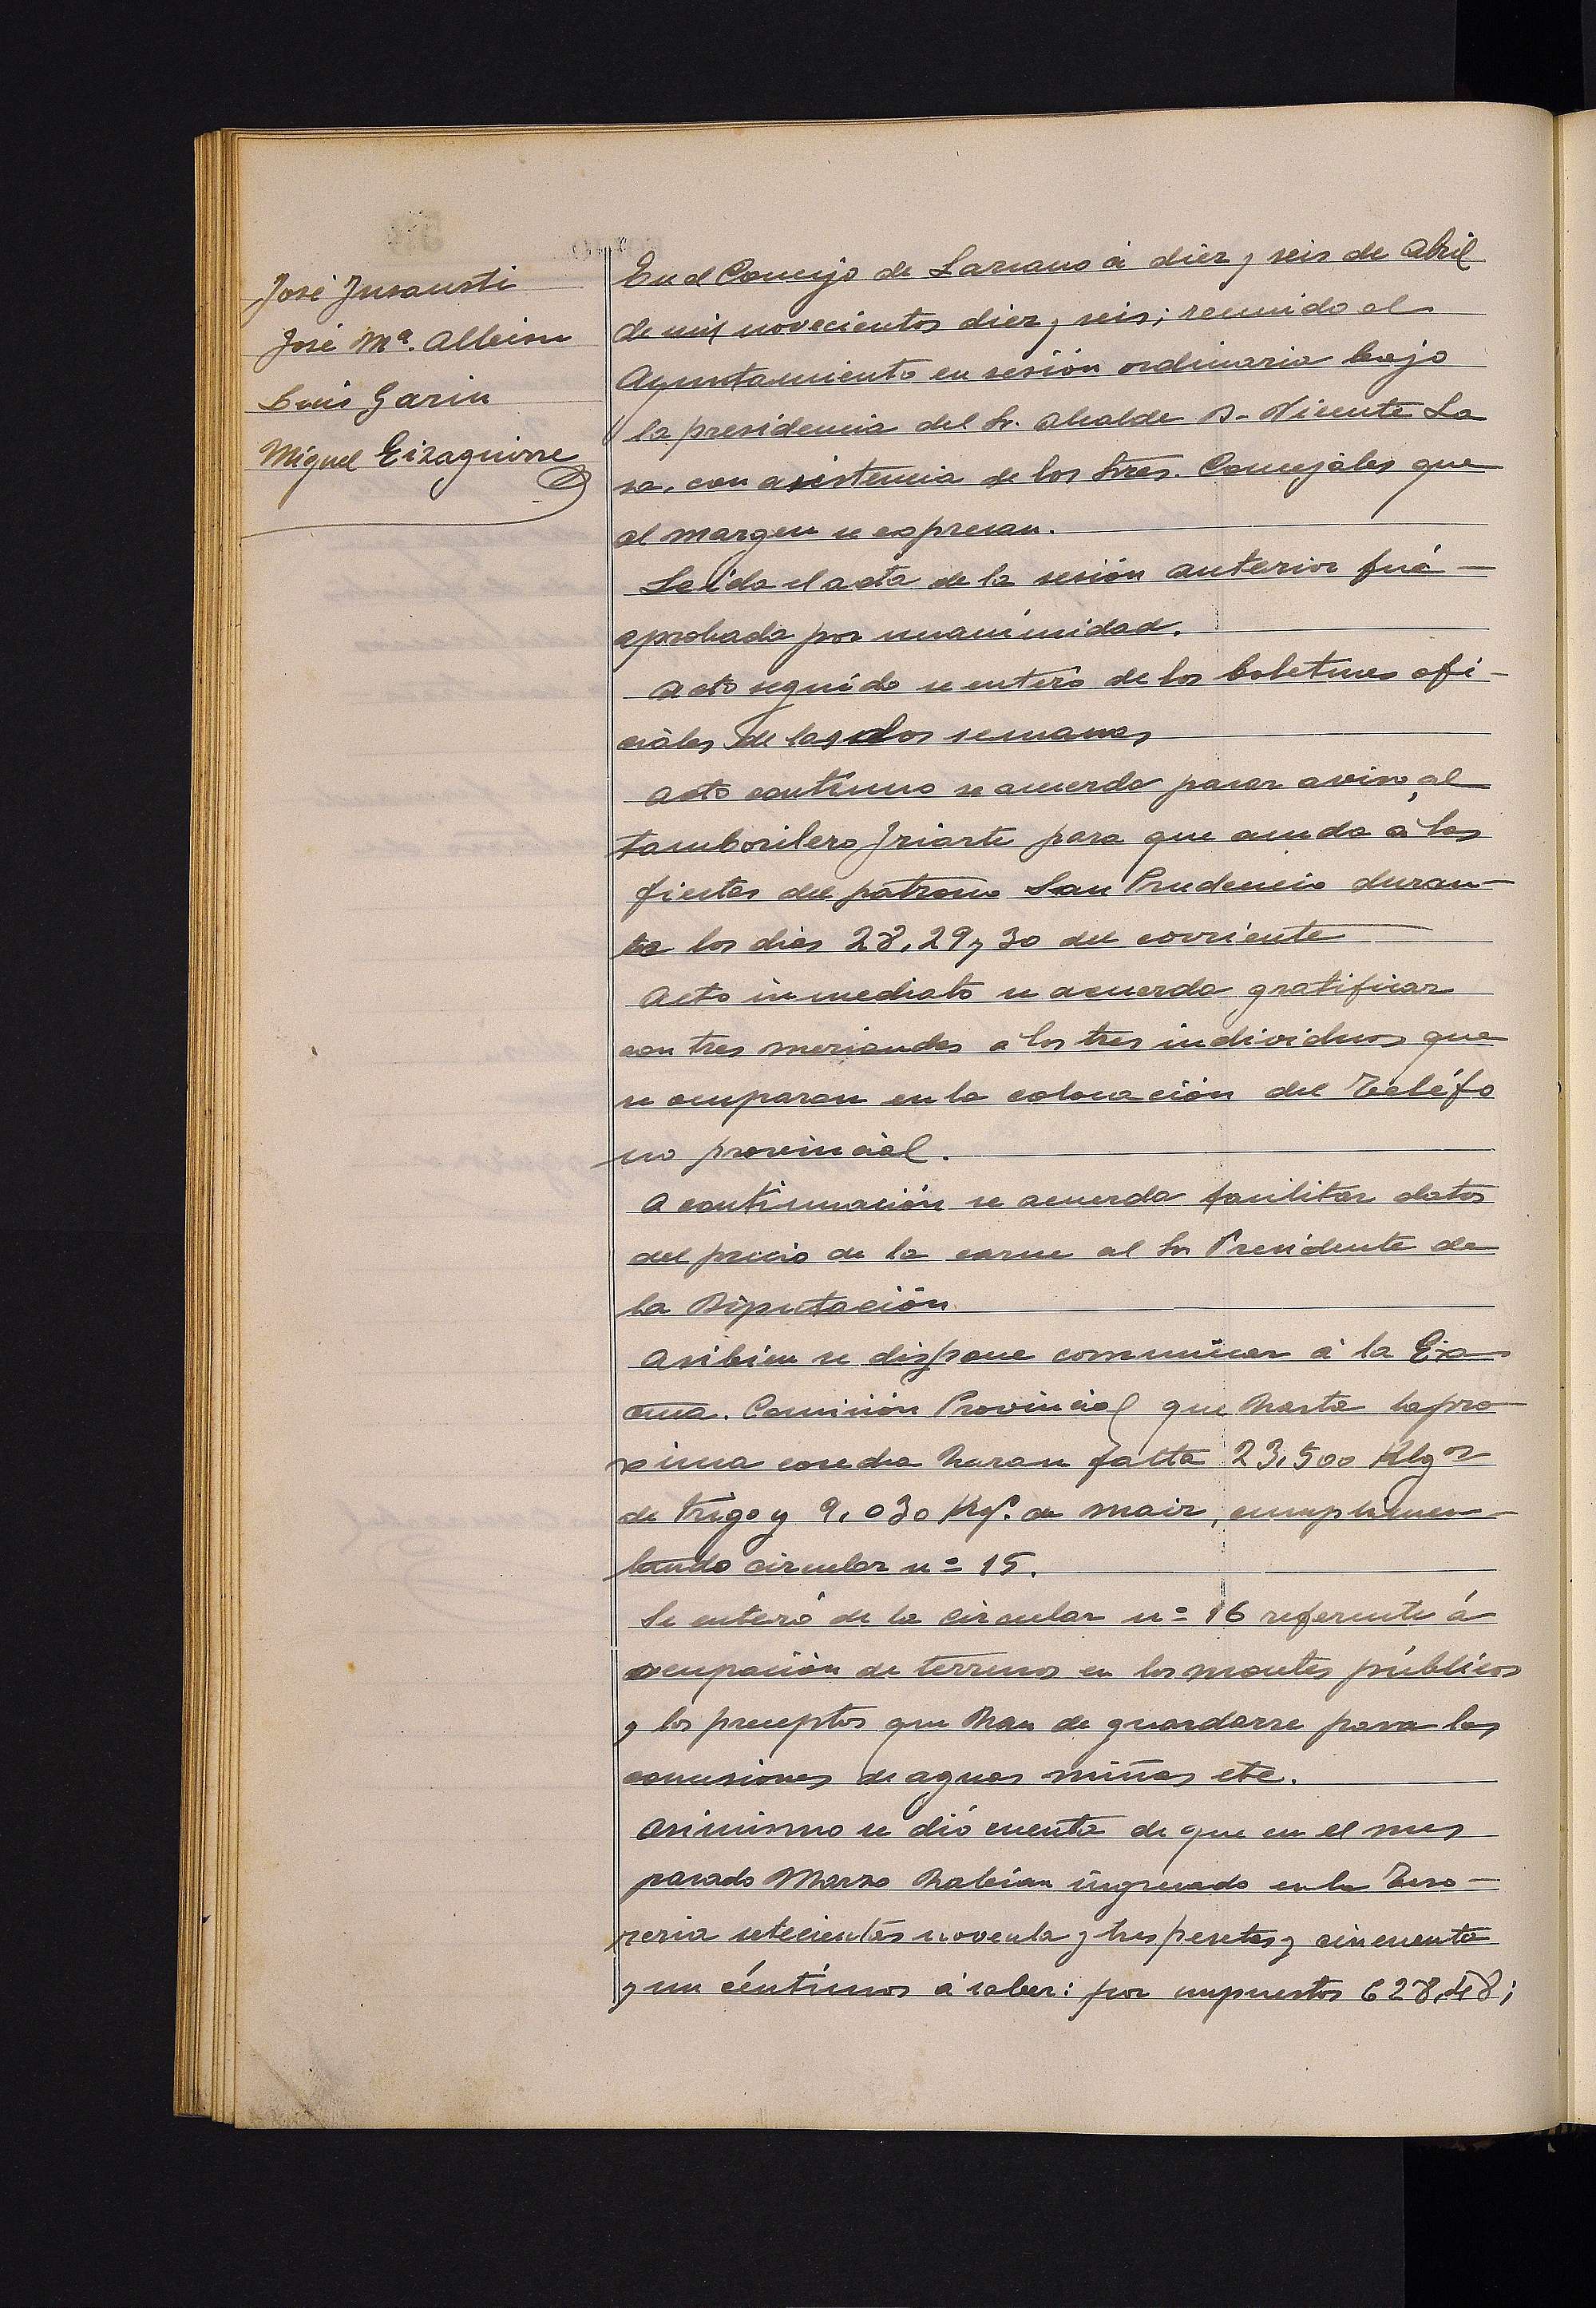 José Insausti
José Mª. Albisu
Luis Garin
Miguel Eizaguirre
En el Concejo de Lazcano á diez y seis de Abril
de mil novecientos diez y seis; reunido el
Ayuntamiento en sesión ordinaria bajo
la presidencia del Sr. Alcalde D. Vicente La
sa, con asistencia de los Sres. Concejales que
al margen se expresan.
Leida el acta de la sesión anterior fué
aprobada por unanimidad.
Acto seguido se enteró de los boletines ofi-
ciales de las dos semanas
Acto continuo se acuerda pasar aviso al
tamborilero Iriarte para que acuda á las
fiestas del patrono San Prudencio duran-
te los dias 28, 29 y 30 del corriente
Acto inmediato se acuerda gratificar
con tres meriendas á los tres individuos que
se ocuparan en la colocación del Teléfo
no provincial.
A continuación se acuerda facilitar datos
del precio de la carne al Sr Presidente de
la Diputación
Asibien se dispone comunicar á la Ex
cma. Comisión Provincial que hasta la pro
xima cosecha haran falta 23,500 Klgos
de trigo y 9,030 Kgs. de maiz, cumplimen-
tando circular nº 15.
Se enteró de la circular nº 16 referente á
ocupación de terrenos en los montes públicos
y los preceptos que han de guardarse para las
concesiones de aguas minas etc.
Asimismo se dió cuenta de que en el mes
pasado Marzo habian ingresado en la Teso-
reria setecientas noventa y tres pesetas y cincuenta
y un céntimos á saber: por impuestos 628,48;